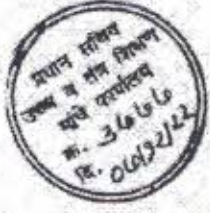 प्रधान सचिव
उच्च व तंत्र शिक्षण
यांचे कार्यालय
क्र. ३७७७
दि. ०७/१२/२२